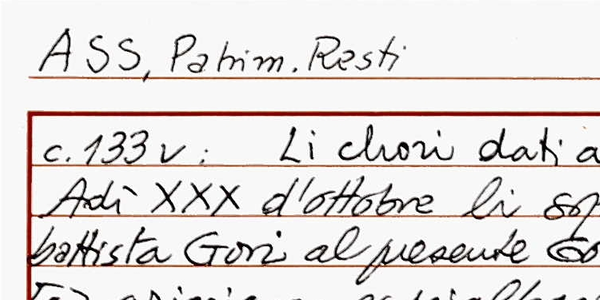 ASS, Patrim. Resti
c. 133 v : Li chori dati a
Adì XXX d'ottobre li
battista Gori al presente